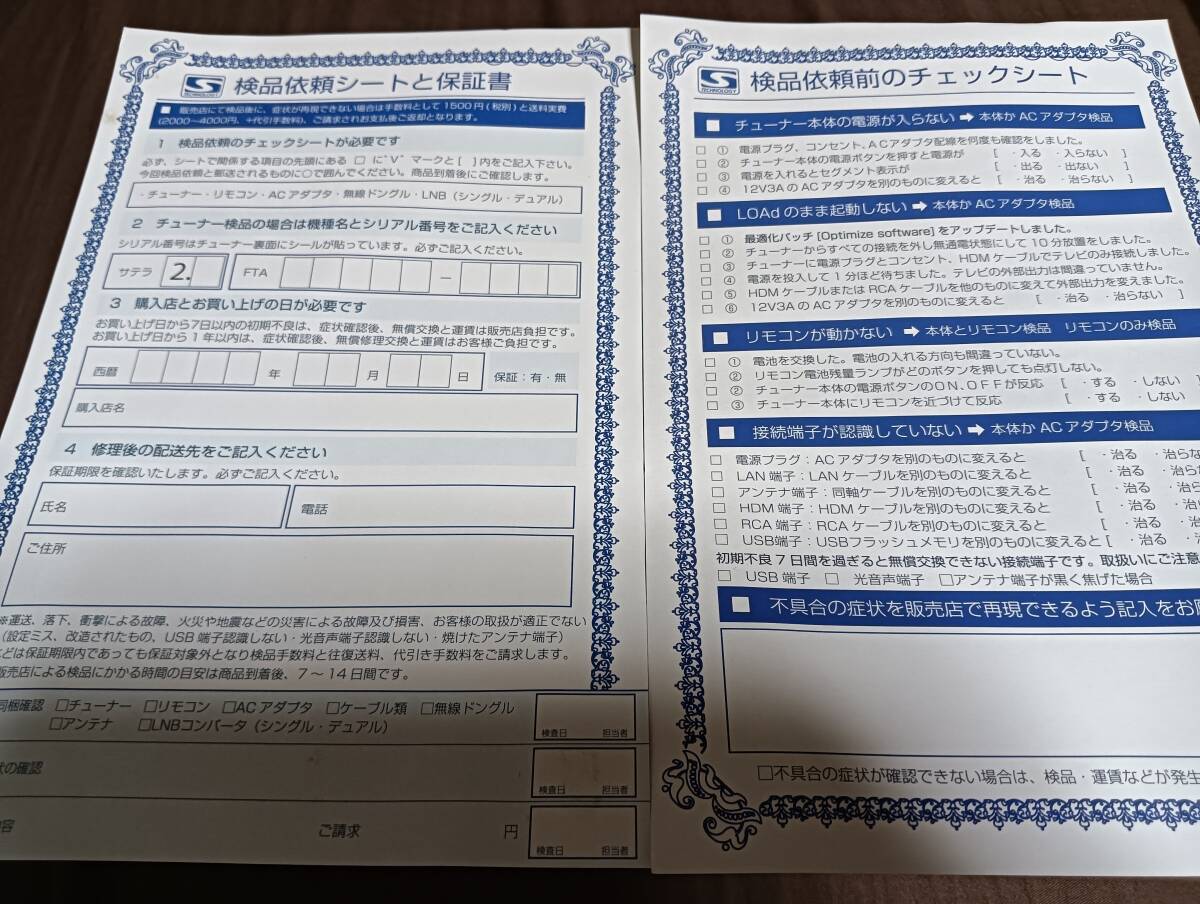 S
TECHNOLOGY
検品依頼シートと保証書
■ 販売店にて検品後に、症状が再現できない場合は手数料として1500円(税別)と送料実費
(2000〜4000円、+代引手数料)、ご請求されお支払後ご返却となります。
1 検品依頼のチェックシートが必要です
必ず、シートで関係する項目の先頭にある □ に"V"マークと[ ]内をご記入下さい。
今回検品依頼と郵送されるものに○で囲んでください。商品到着後にご確認します。
・チューナー・リモコン・ACアダプタ・無線ドングル・LNB(シングル・デュアル)
2 チューナー検品の場合は機種名とシリアル番号をご記入ください
シリアル番号はチューナー裏面にシールが貼っています。必ずご記入ください。
サテラ 2. FTA –
3 購入店とお買い上げの日が必要です
お買い上げ日から7日以内の初期不良は、症状確認後、無償交換と運賃は販売店負担です。
お買い上げ日から1年以内は、症状確認後、無償修理交換と運賃はお客様ご負担です。
西暦 年 月 日 保証:有・無
購入店名
4 修理後の配送先をご記入ください
保証期限を確認いたします。必ずご記入ください。
氏名 電話
ご住所
※運送、落下、衝撃による故障、火災や地震などの災害による故障及び損害、お客様の取扱が適正でない
(設定ミス、改造されたもの、USB端子認識しない・光音声端子認識しない・焼けたアンテナ端子)
どは保証期限内であっても保証対象外となり検品手数料と往復送料、代引き手数料をご請求します。
販売店による検品にかかる時間の目安は商品到着後、7〜14日間です。
同梱確認 □チューナー □リモコン □ACアダプタ □ケーブル類 □無線ドングル
□アンテナ □LNBコンバータ(シングル・デュアル)
検査日 担当者
の確認
検査日 担当者
ご請求 円
検査日 担当者
S
TECHNOLOGY
検品依頼前のチェックシート
■ チューナー本体の電源が入らない ➡ 本体か ACアダプタ検品
□ ① 電源プラグ、コンセント、ACアダプタ配線を何度も確認をしました。
□ ② チューナー本体の電源ボタンを押すと電源が [ ・入る ・入らない ]
□ ③ 電源を入れるとセグメント表示が [ ・出る ・出ない ]
□ ④ 12V3AのACアダプタを別のものに変えると [ ・治る ・治らない ]
■ LOAdのまま起動しない ➡ 本体か ACアダプタ検品
□ ① 最適化パッチ[Optimize software]をアップデートしました。
□ ② チューナーからすべての接続を外し無通電状態にして10分放置をしました。
□ ③ チューナーに電源プラグとコンセント、HDMケーブルでテレビのみ接続しました。
□ ④ 電源を投入して1分ほど待ちました。テレビの外部出力は間違っていません。
□ ⑤ HDMケーブルまたはRCAケーブルを他のものに変えて外部出力を変えました。
□ ⑥ 12V3AのACアダプタを別のものに変えると [ ・治る ・治らない ]
■ リモコンが動かない ➡ 本体とリモコン検品 リモコンのみ検品
□ ① 電池を交換した。電池の入れる方向も間違っていない。
□ ② リモコン電池残量ランプがどのボタンを押しても点灯しない。
□ ② チューナー本体の電源ボタンのON.OFFが反応 [ ・する ・しない ]
□ ③ チューナー本体にリモコンを近づけて反応 [ ・する ・しない
■ 接続端子が認識していない ➡ 本体か ACアダプタ検品
□ 電源プラグ:ACアダプタを別のものに変えると [ ・治る ・治らな
□ LAN端子:LANケーブルを別のものに変えると [ ・治る ・治ら
□ アンテナ端子:同軸ケーブルを別のものに変えると [ ・治る ・治ら
□ HDM端子:HDMケーブルを別のものに変えると [ ・治る ・治ら
□ RCA端子:RCAケーブルを別のものに変えると [ ・治る ・治
□ USB端子:USBフラッシュメモリを別のものに変えると [ ・治る ・治
初期不良7日間を過ぎると無償交換できない接続端子です。取扱いにご注意
□ USB端子 □ 光音声端子 □アンテナ端子が黒く焦げた場合
■ 不具合の症状を販売店で再現できるよう記入をお
□不具合の症状が確認できない場合は、検品・運賃などが発生